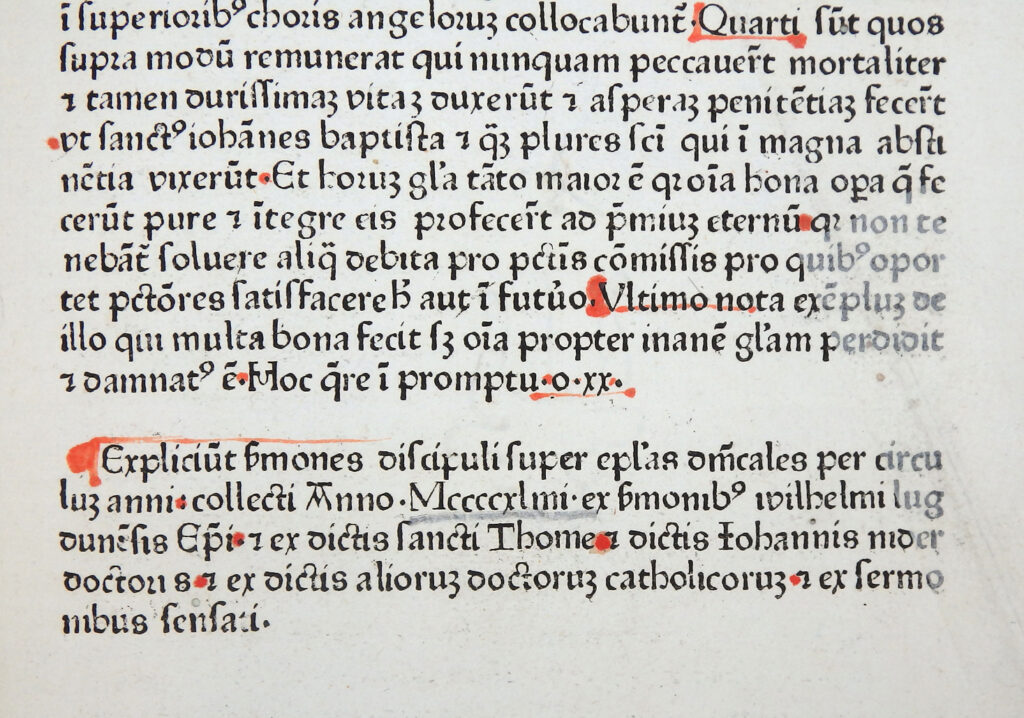 ī superiorib⁹ choris angeloruꝫ collocabunt᷑. Quarti sūt quos
supra modū remunerat qui nunquam peccauer̄t mortaliter
⁊ tamen durissimaꝫ vitaꝫ duxerūt ⁊ asperaꝫ penitētiaꝫ fecer̄t
vt sanct⁹ iohānes baptista ⁊ q̄ꝫ plures sci̅ qui ī magna absti
nētia vixerūt. Et horuꝫ gl'a tāto maior ē qꝛ oīa bona oꝑa q̄ fe
cerūt pure ⁊ ītegre eis profecer̄t ad p̄miuꝫ eternū qꝛ non te
nebāt᷑ soluere aliq̄ debita pro pctīs cōmissis pro quib⁹ opor
tet pctōres satisfacere h̄ aut ī futu̇o. Vltimo nota exēpluꝫ de
illo qui multa bona fecit sꝫ oīa propter inanē gl'am perdidit
⁊ damnat⁹ ē. Hoc q̄re ī promptu. o. xx.
Expliciūt s̄mones discipuli super epl'as dm̄cales per circu
luꝫ anni: collecti A̅nno. Mccccxlmi. ex s̄monib⁹ wilhelmi lug
dunēsis Ep̄i. ⁊ ex dictis sancti Thome ⁊ dictis Iohannis nider
doctoris. ⁊ ex dictis alioruꝫ doctoruꝫ catholicoruꝫ. ⁊ ex sermo
nibus sensati.